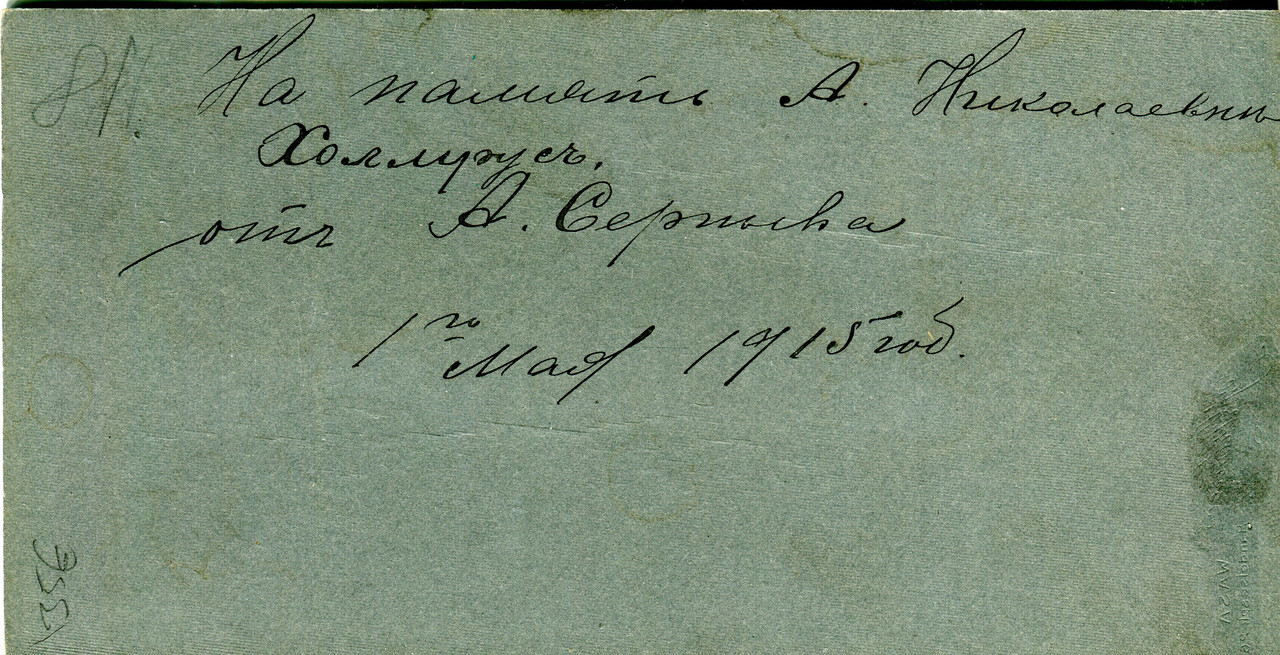 На память А. Николаевнѣ
Холлурусъ.
отъ А. Серпыева
1го Мая 1915 год.
811